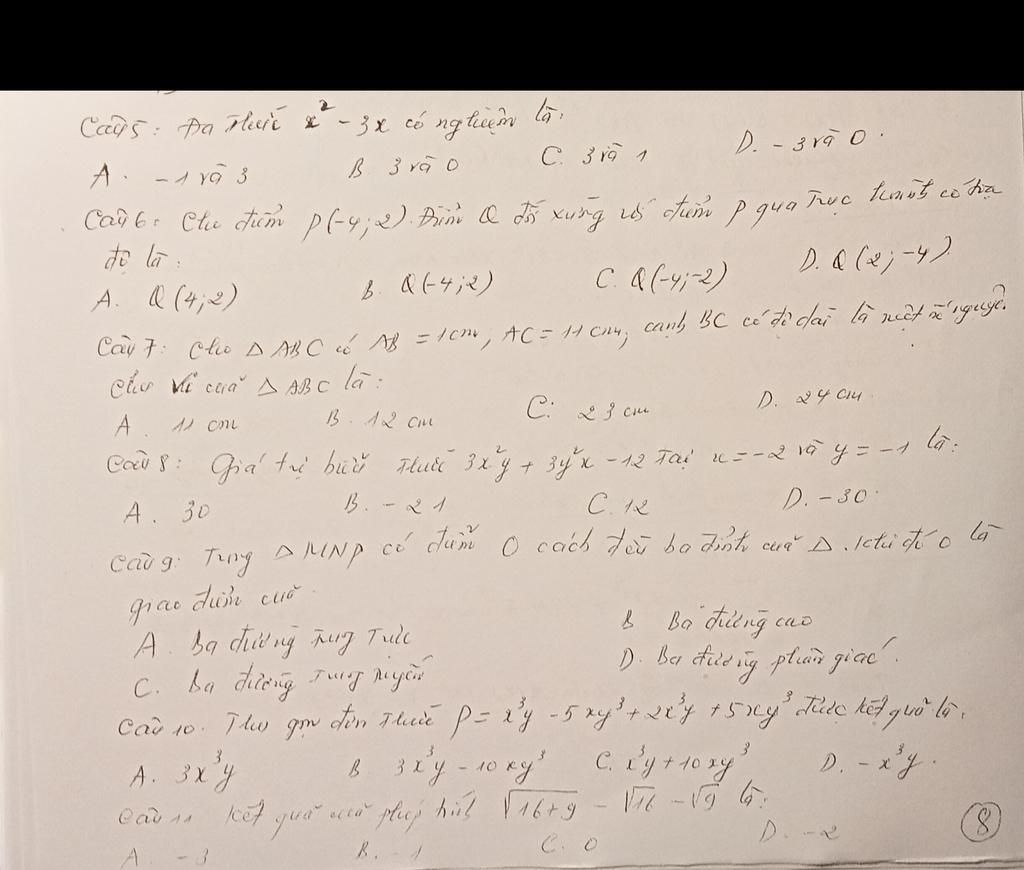 Câu 5: Đa thức x² - 3x có nghiệm là:
A. -1 và 3 B. 3 và 0 C. 3 và 1 D. -3 và 0.
Câu 6: Cho điểm P(-4;2). Điểm Q đối xứng với điểm P qua trục hoành có tọa
độ là:
A. Q(4;2) B. Q(-4;2) C. Q(-4;-2) D. Q(2;-4)
Câu 7: Cho △ABC có AB = 1cm, AC = 11cm, cạnh BC có độ dài là một số nguyên.
Chu vi của △ABC là:
A. 11 cm B. 12 cm C: 23 cm D. 24 cm.
Câu 8: Giá trị biểu thức 3x²y + 3y²x - 12 tại x = -2 và y = -1 là:
A. 30 B. -21 C. 12 D. -30.
Câu 9: Trong △MNP có điểm O cách đều ba đỉnh của △. Khi đó O là
giao điểm của.
A. Ba đường trung trực B Ba đường cao
C. Ba đường trung tuyến D. Ba đường phân giác.
Câu 10. Thu gọn đơn thức P = x³y - 5xy³ + 2x³y + 5xy³ được kết quả là:
A. 3x³y B 3x³y - 10xy³ C. x³y + 10xy³ D. -x³y.
Câu 11 Kết quả của phép tính √(16+9) - √16 - √9 là:
A. -3 B. -1 C. 0 D. -2
8